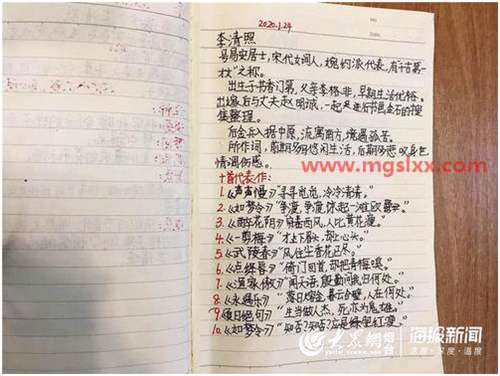 2020.1.24
李清照
号易安居士，宋代女词人，婉约派代表，有"千古第一
才女"之称。
出生于书香门第，父亲李格非，早期生活优裕。
出嫁后与丈夫赵明诚，一起
集整理。
后金兵入据中原，流寓南方，境遇孤苦。
所作词，前期多写悠闲生活，后期多悲叹身世
情调伤感。
www.mgslxx.com
十首代表作：
1.《声声慢》"寻寻觅觅，冷冷清清。"
2.《如梦令》"争渡，争渡，惊起一滩鸥鹭。"
3.《醉花阴》"西风，人比黄花瘦。"
4.《一剪梅》"才下眉头，却上心头。"
5.《武陵春》"风住尘香花已尽。"
6.《点绛唇》"倚门回首，却把青梅嗅。"
7.《渔家傲》"闻天语，殷勤问我归何处。"
8.《永遇乐》"落日熔金，暮云合璧，人在何处。"
9.《夏日绝句》"生当做人杰，死亦为鬼雄。"
10.《如梦令》"知否？知否？应是绿肥红瘦。"
大众网 海报新闻